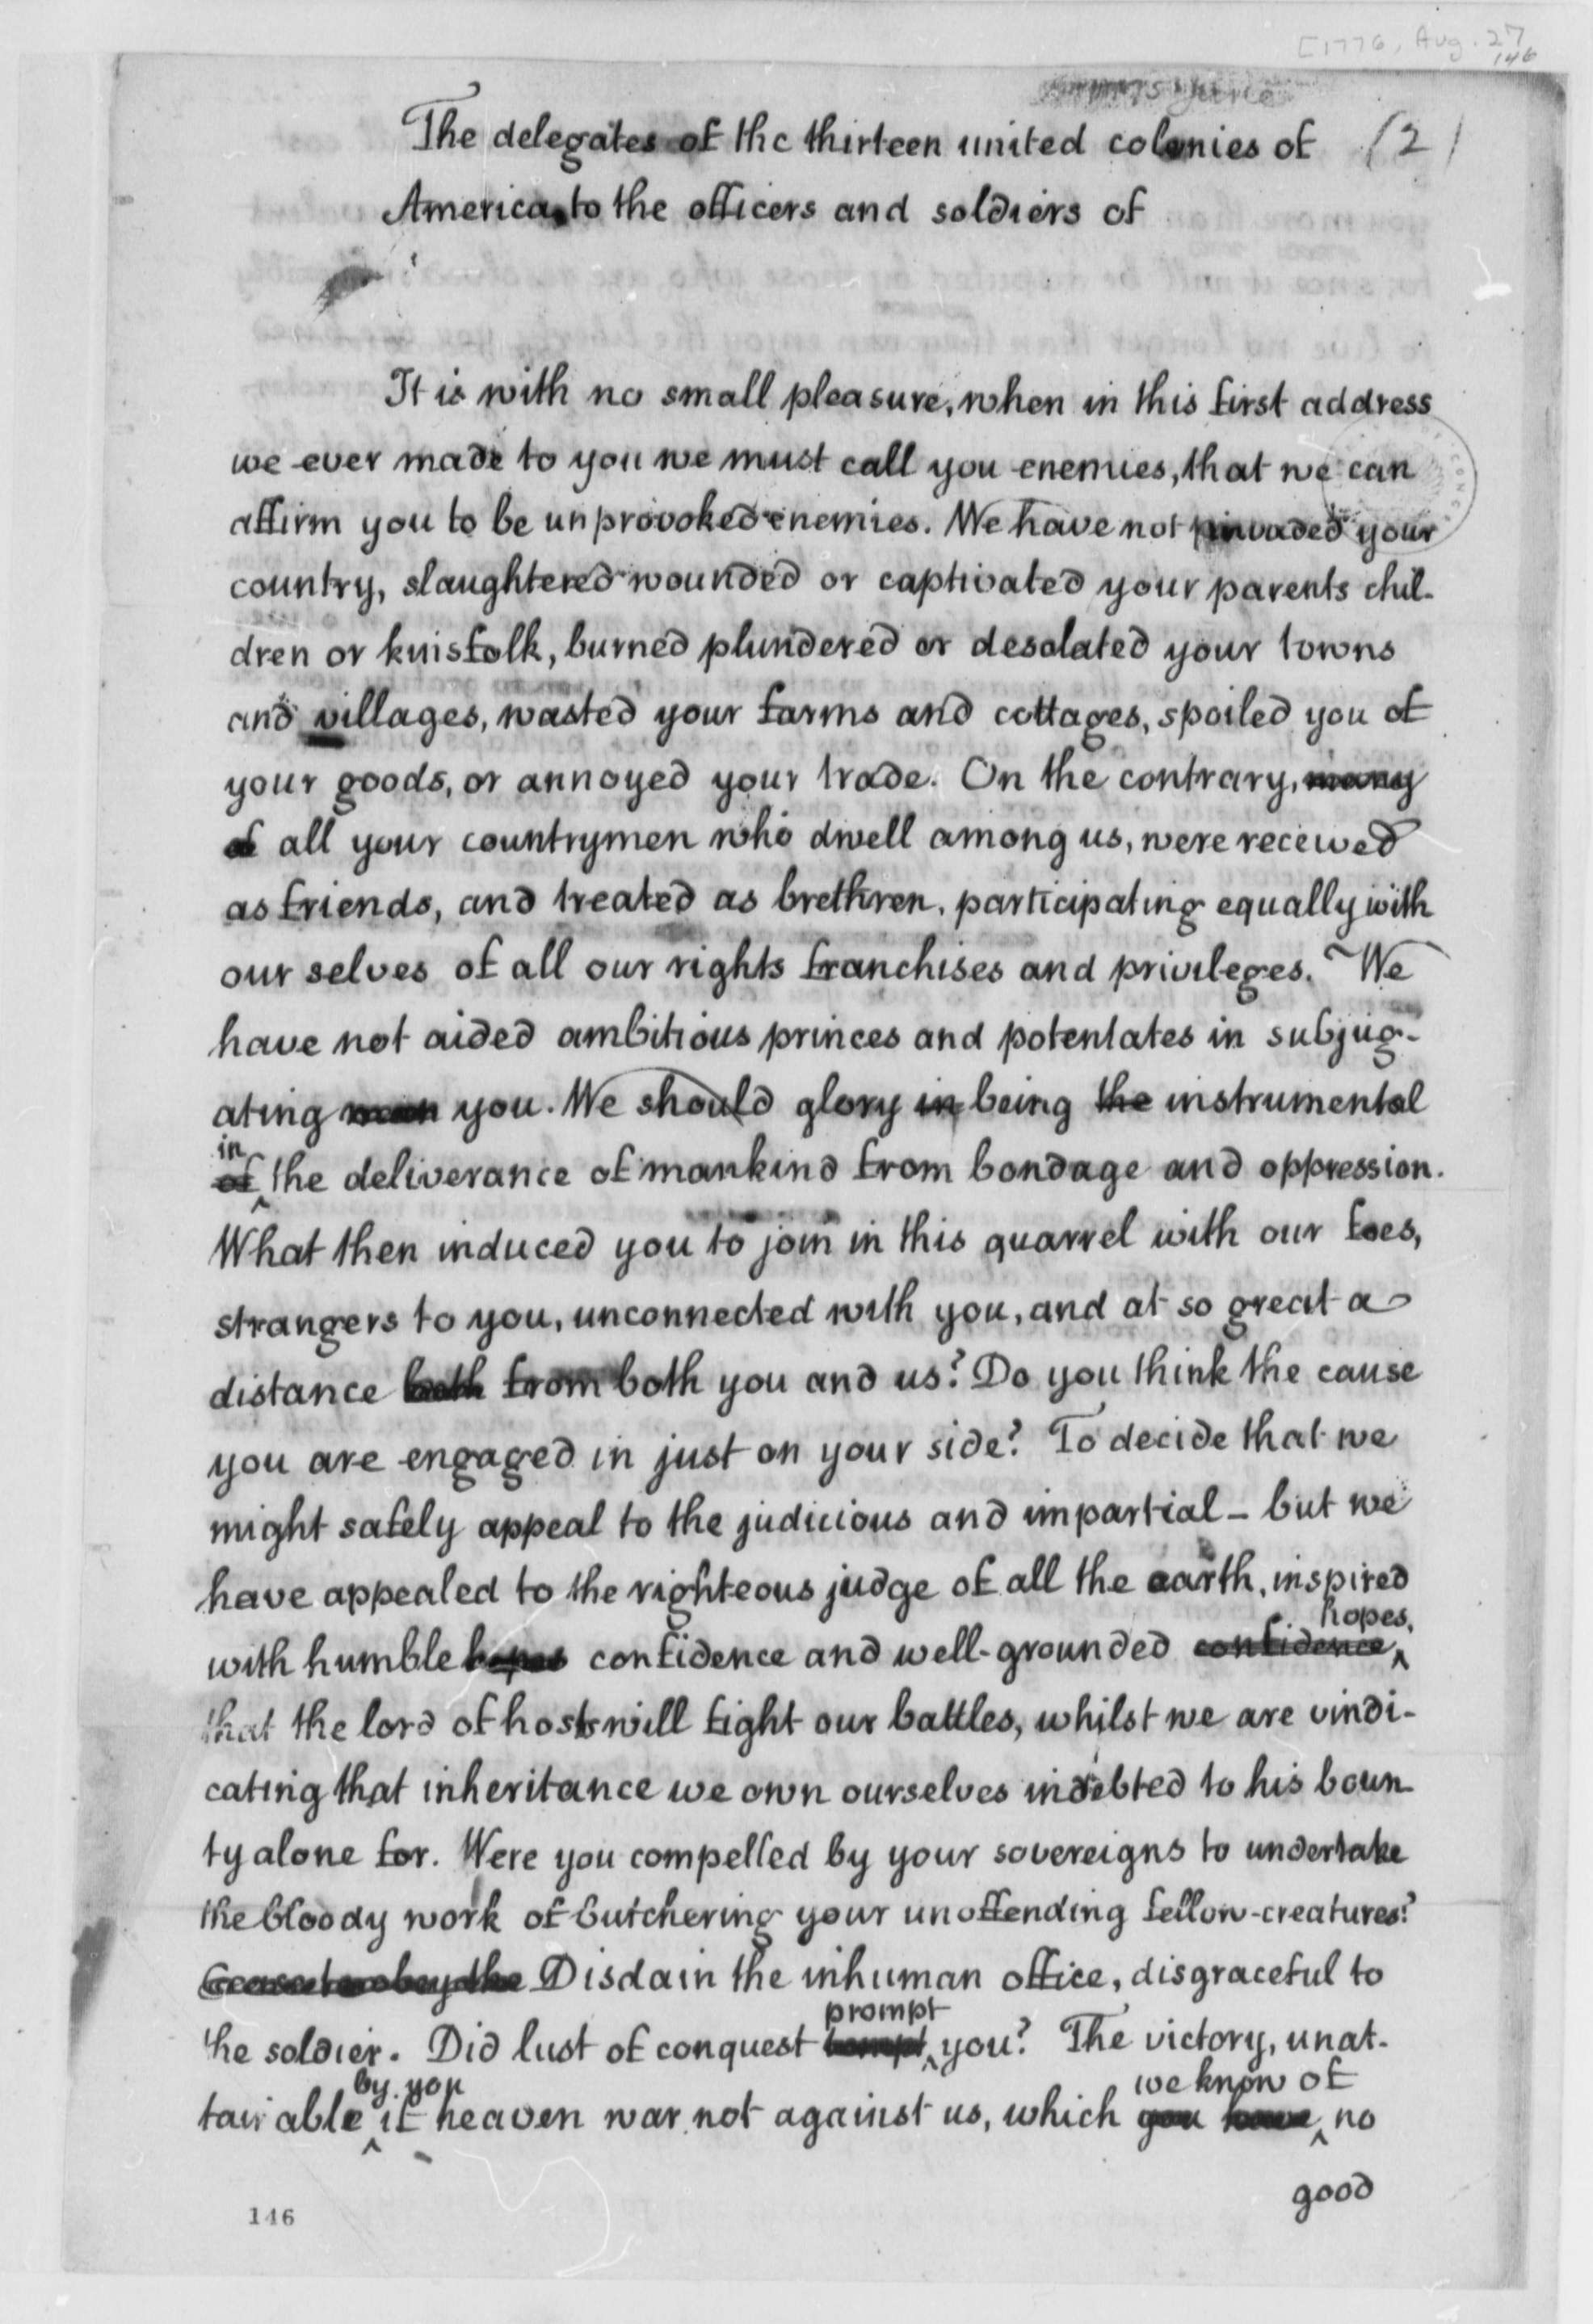 [1776, Aug. 27
146
The delegates of the thirteen united colonies of (2)
America, to the officers and soldiers of
It is with no small pleasure, when in this first address
we ever made to you we must call you enemies, that we can
affirm you to be unprovoked enemies. We have not invaded your
country, slaughtered wounded or captivated your parents chil-
dren or kinsfolk, burned plundered or desolated your towns
and villages, wasted your farms and cottages, spoiled you of
your goods, or annoyed your trade. On the contrary, many
of all your countrymen who dwell among us, were received
as friends, and treated as brethren, participating equally with
our selves of all our rights franchises and privileges. We
have not aided ambitious princes and potentates in subjug-
ating men you. We should glory in being the instrumental
in
of the deliverance of mankind from bondage and oppression.
What then induced you to join in this quarrel with our foes,
strangers to you, unconnected with you, and at so great a
distance both from both you and us? Do you think the cause
you are engaged in just on your side? To decide that we
might safely appeal to the judicious and impartial – but we
have appealed to the righteous judge of all the earth, inspired
hopes,
with humble hopes confidence and well-grounded confidence
that the lord of hosts will fight our battles, whilst we are vindi-
cating that inheritance we own ourselves indebted to his boun-
ty alone for. Were you compelled by your sovereigns to undertake
the bloody work of butchering your unoffending fellow-creatures?
Cease to obey the Disdain the inhuman office, disgraceful to
the soldier. Did lust of conquest tempt you? The victory, unat-
prompt
by you we know of
tainable if heaven war not against us, which you have no
good
146